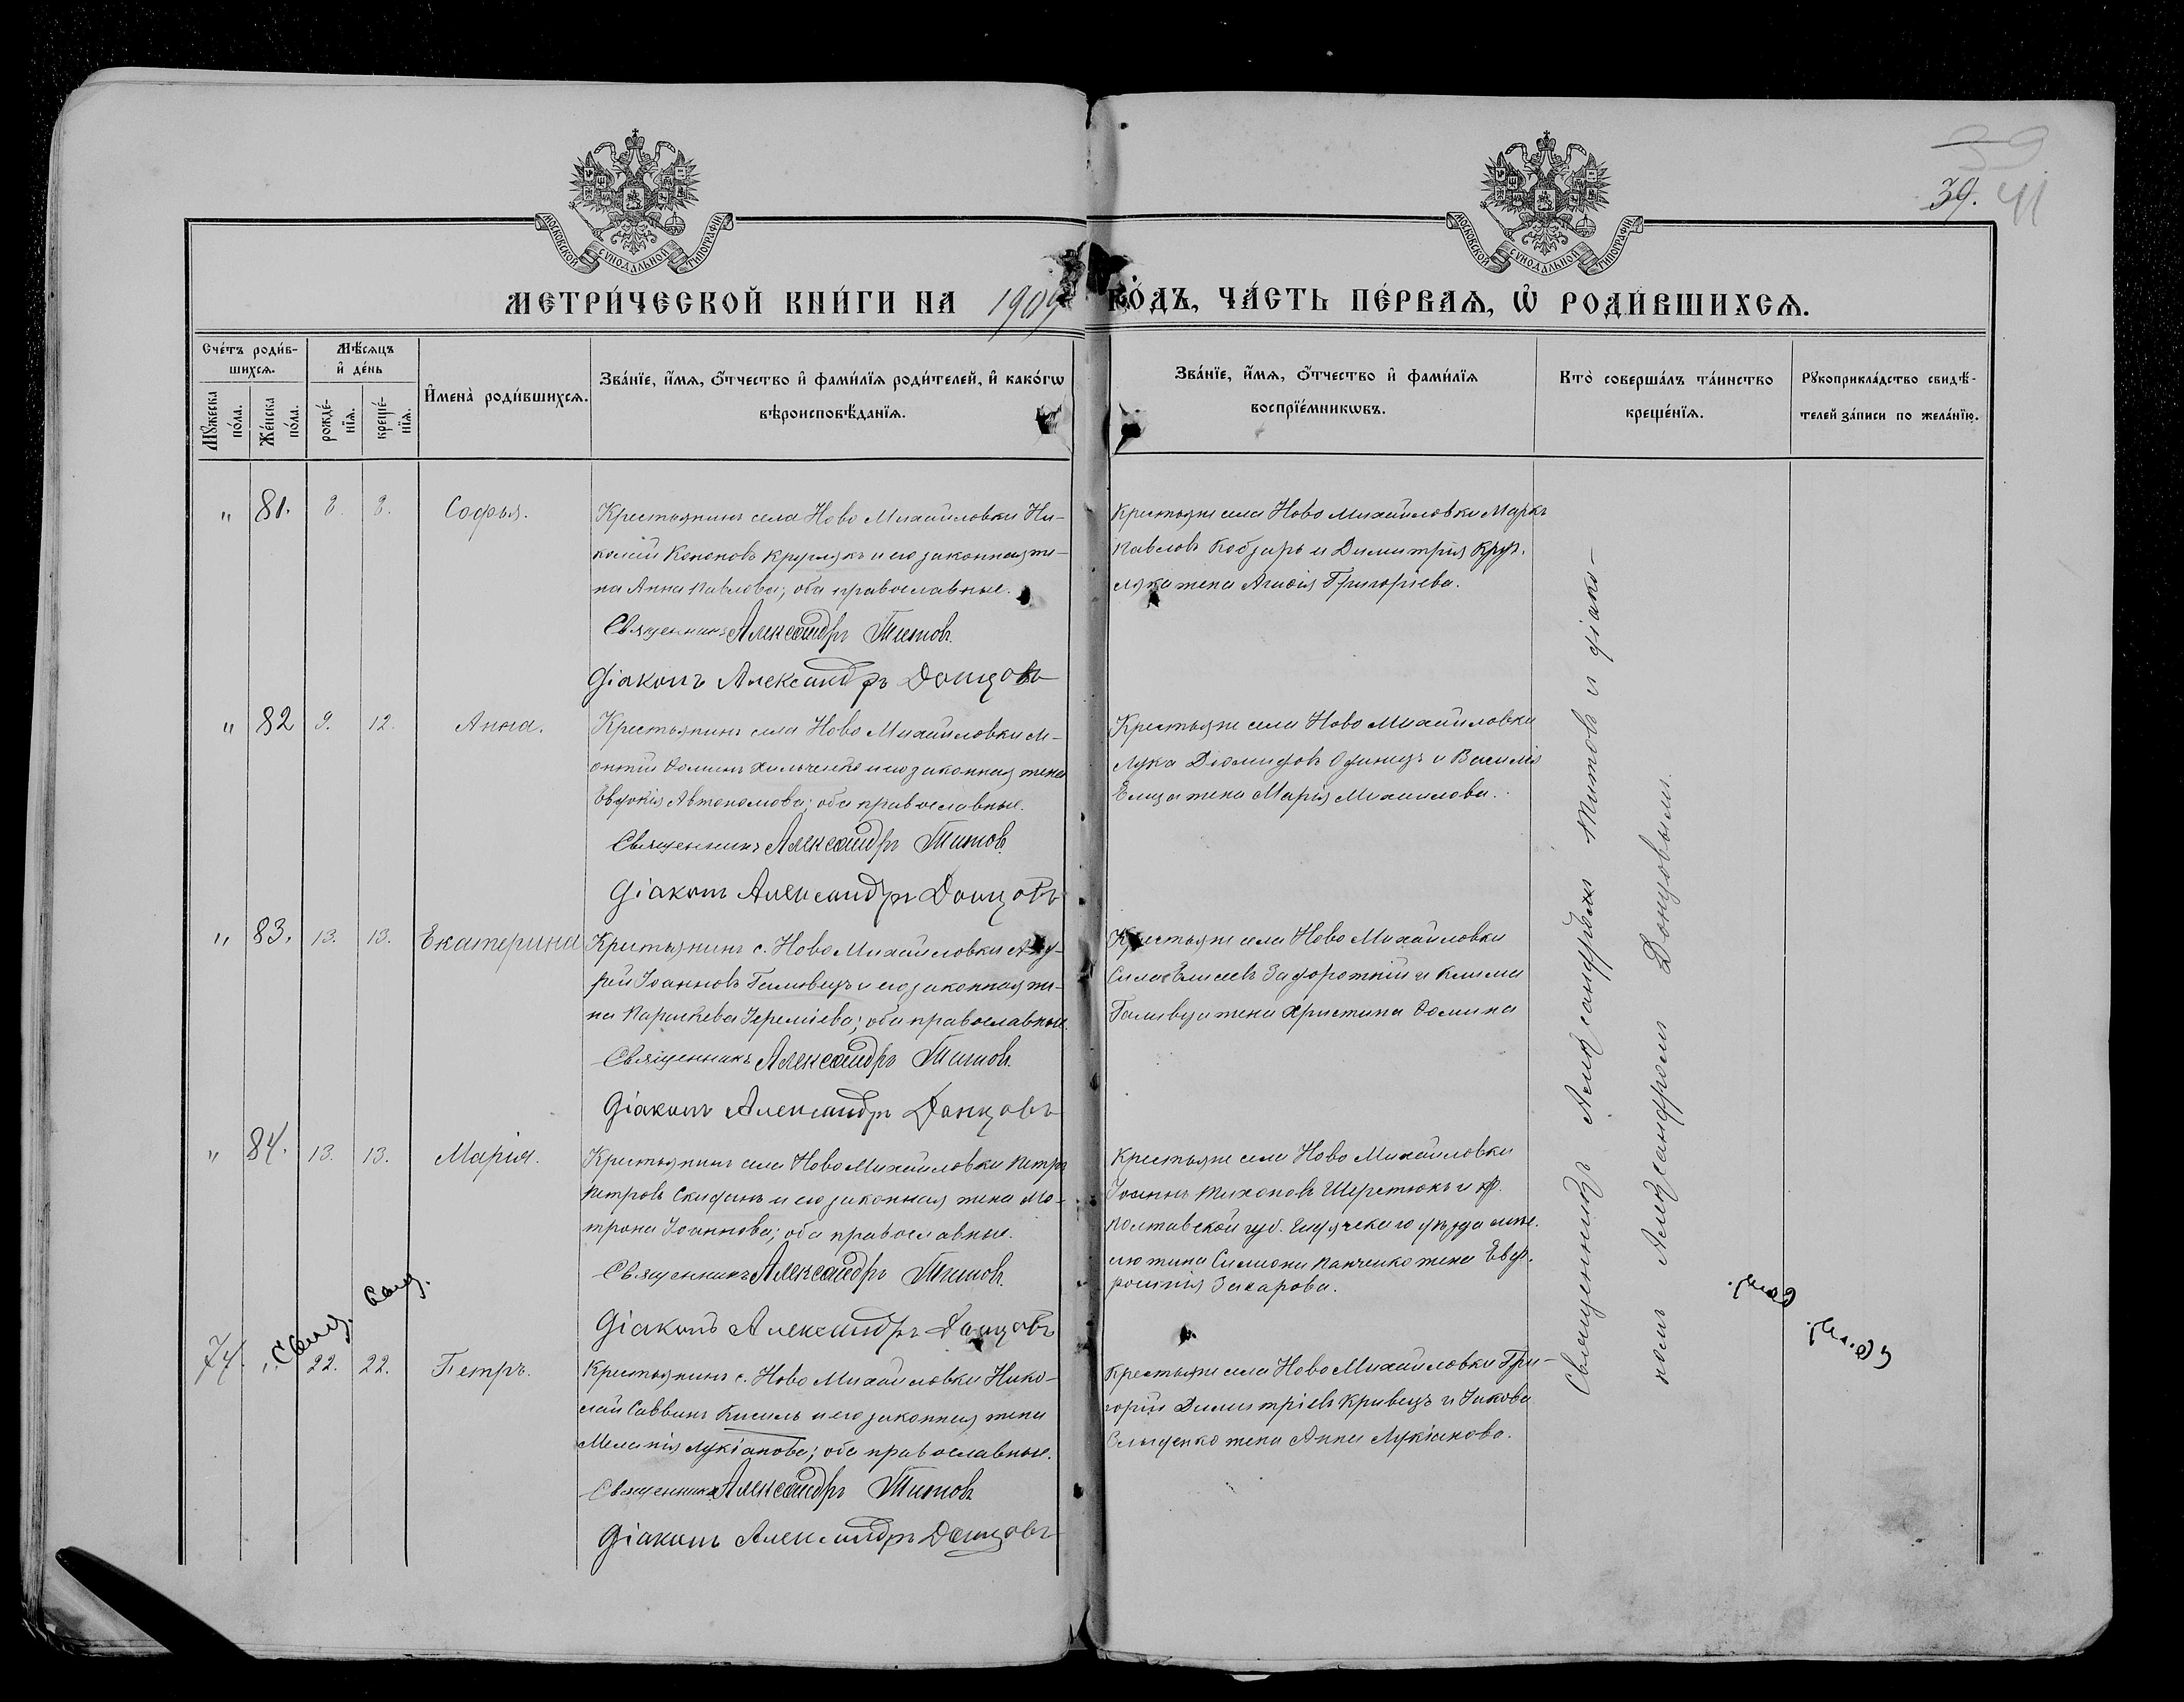 39
39. 41
МОСКОВСКОЙ СѴНОДАЛЬНОЙ ТИПОГРАФІИ
МОСКОВСКОЙ СѴНОДАЛЬНОЙ ТИПОГРАФІИ
МЕТРИ́ЧЕСКОЙ КНИ́ГИ НА 1909 ГО́ДЪ, ЧА́СТЬ ПЕ́РВАѦ, Ѡ҆ РОДИ́ВШИХСѦ.
Сче́тъ роди́в-
шихсѧ.
Мꙋ́жеска по́ла.
Же́нска по́ла.
Мѣ́сяцъ
и҆ де́нь
рожде́-
нїѧ.
креще́-
нїѧ.
И҆мена̀ роди́вшихсѧ.
Зва́нїе, и҆́мѧ, ѻ҆́тчество и҆ фами́лїѧ роди́телей, и҆ како́гѡ
вѣроисповѣ́данїѧ.
Зва́нїе, и҆́мѧ, ѻ҆́тчество и҆ фами́лїѧ
воспрїе́мникѡвъ.
Кто̀ соверша́лъ та́инство
креще́нїѧ.
Рꙋкоприкла́дство свидѣ́-
телей за́писи по жела́нїю.
" 81. 8. 8. Софья.
Крестьянинъ села Ново Михайловки Ни-
колай Кононовъ Круглякъ и его законная же-
на Анна Павлова; оба православные.
Священникъ Александръ Титовъ.
Діаконъ Александръ Донцовъ
Крестьяне села Ново Михайловки Маркъ
Павловъ Кобзарь и Димитрія Круг-
ляка жена Агафія Григоріева.
" 82 9. 12. Анна.
Крестьянинъ села Ново Михайловки Ле-
онтій Фоминъ Хильченко и его законная жена
Евдокія Автономова; оба православные.
Священникъ Александръ Титовъ
Діаконъ Александръ Донцовъ
Крестьяне села Ново Михайловки
Лука Діомидовъ Одинецъ и Василія
Елица жена Марія Михаилова.
" 83. 13. 13. Екатерина
Крестьянинъ с. Ново Михайловки Анд-
рей Іоанновъ Галивецъ и его законная же-
на Параскева Іереміева; оба православные.
Священникъ Александръ Титовъ.
Діаконъ Александръ Донцовъ
Крестьяне села Ново Михайловки
Сила Елисеевъ Задорожній и Клима
Галивца жена Христина Фомина
" 84. 13. 13. Марія.
Крестьянинъ села Ново Михайловки Петръ
Петровъ Скиданъ и его законная жена Ма-
трона Іоаннова; оба православные.
Священникъ Александръ Титовъ.
Діаконъ Александръ Донцовъ
Крестьяне села Ново Михайловки
Іоаннъ Тихоновъ Шеретюкъ и кр.
Полтавской губ. уѣзда
Симеона Панченко жена Евф-
росинія Захарова.
74. " 22. 22. Петръ.
Крестьянинъ с. Ново Михайловки Нико-
лай Саввинъ Кисиль и его законная жена
Меланія Лукіанова; оба православные.
Священникъ Александръ Титовъ
Діаконъ Александръ Донцовъ
Крестьяне села Ново Михайловки Гри-
горій Димитріевъ Кривецъ и Іакова
жена Анна Лукіанова.
Священникъ Александръ Титовъ и діако-
номъ Александромъ Донцовымъ.